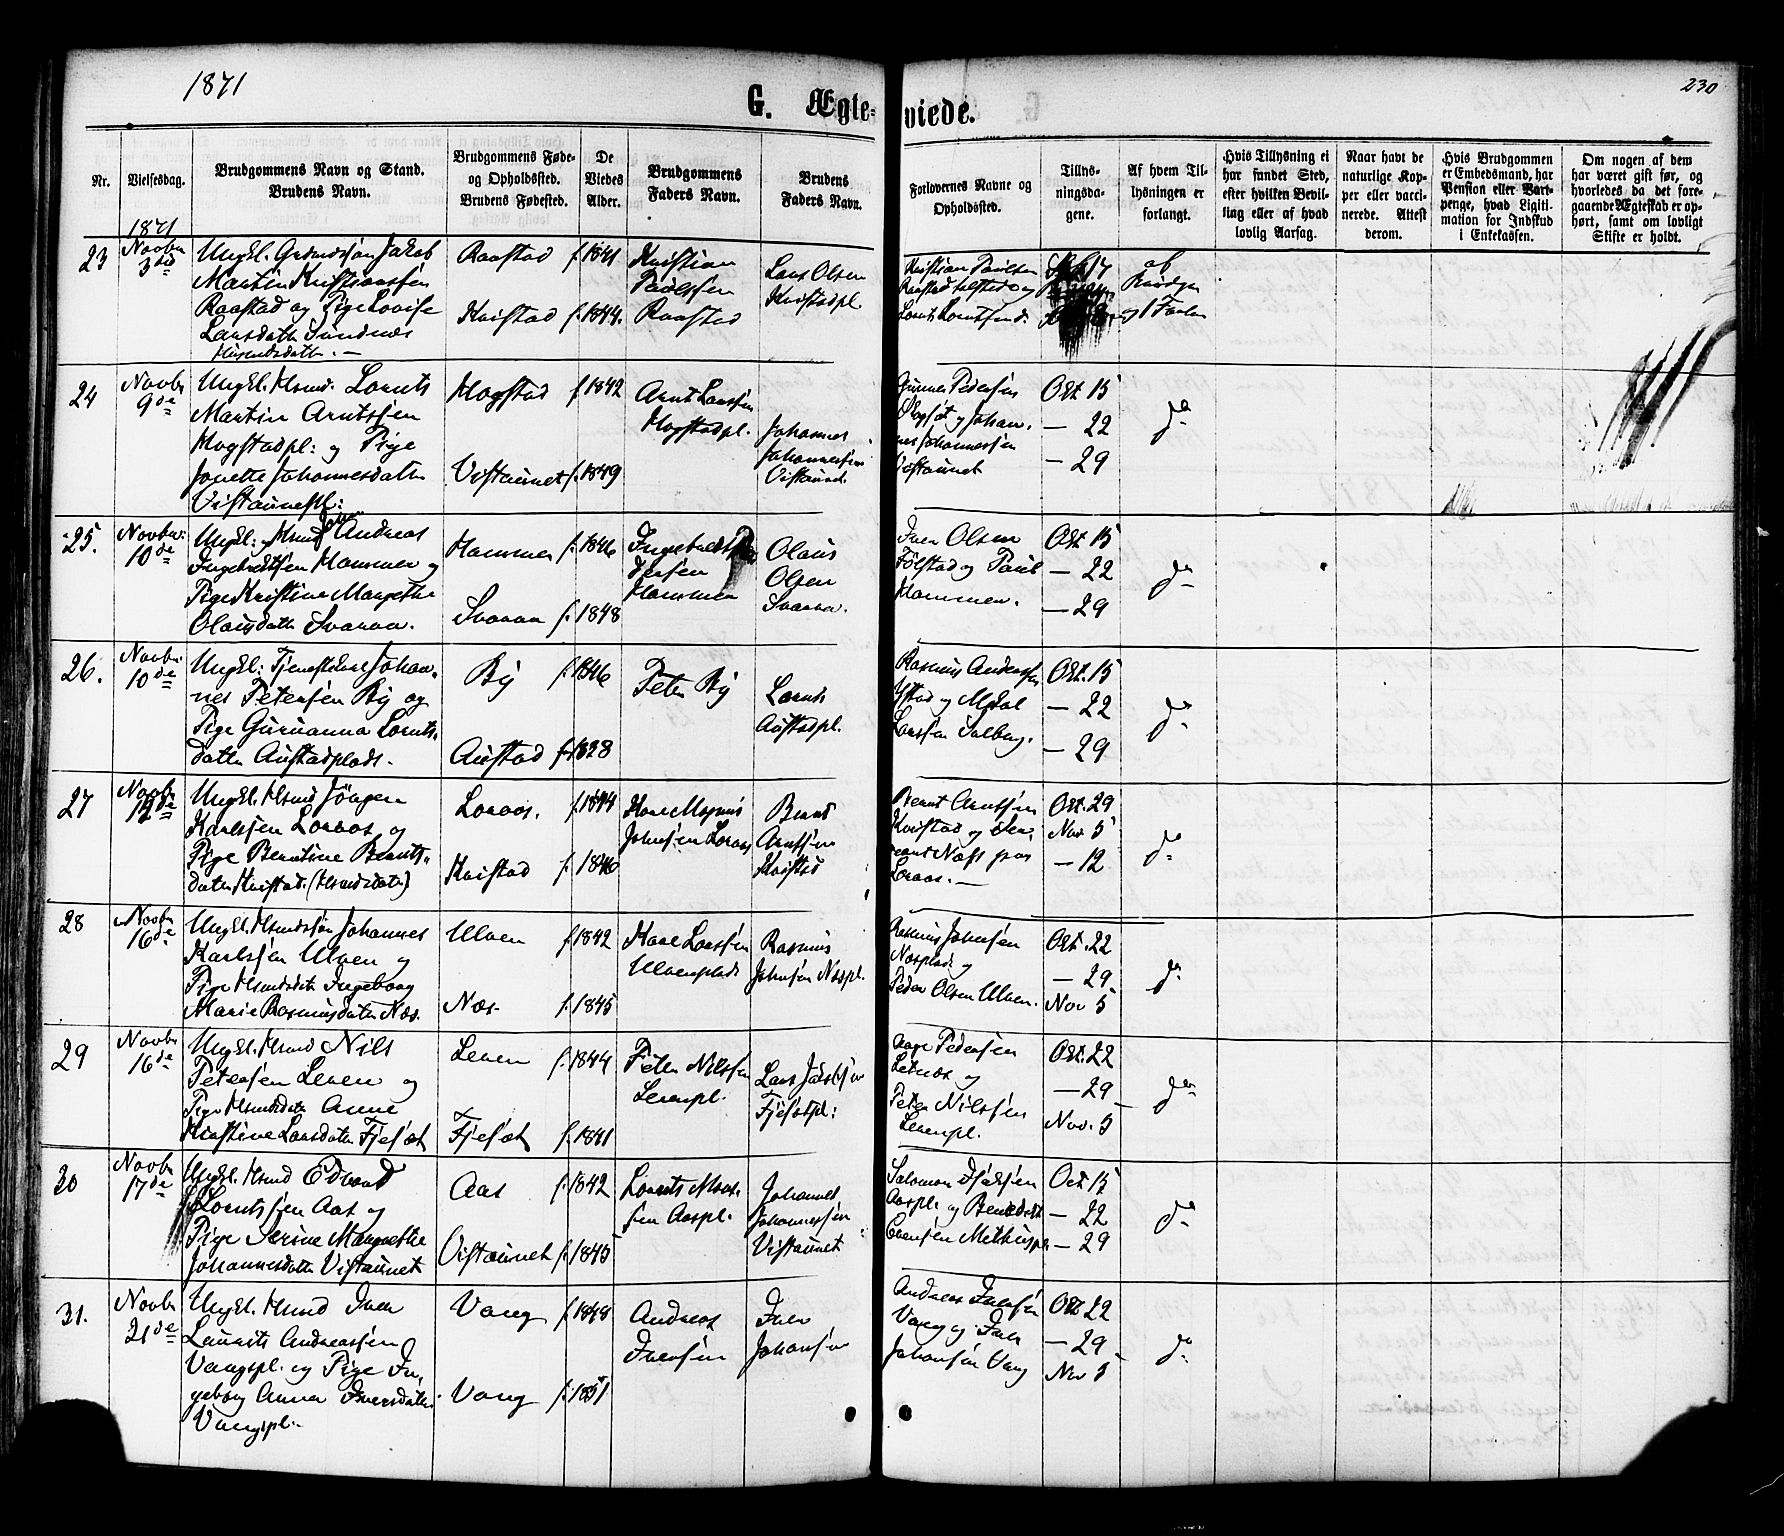 1871
230
G. Ægte-
viede.
Nr.
Vielsesdag.
Brudgommens Navn og Stand.
Brudens Navn.
Brudgommens Føde-
og Opholdssted.
Brudens Fødested.
De
Viedes
Alder.
Brudgommens
Faders Navn.
Brudens
Faders Navn.
Forlovernes Navne og
Opholdssted.
Tillys-
ningsda-
gene.
Af hvem Til-
lysningen er
forlangt.
Hvis Tillysning ei
har fundet Sted,
efter hvilken Bevil-
ling eller af hvad
lovlig Aarsag.
Naar havt de
naturlige Kop-
per eller vacci-
nerede. Attest
derom.
Hvis Brudgommen
er Embedsmand, har
Pension eller Vart-
penge, hvad Ligiti-
mation for Indskud
i Enkekassen.
Om nogen af dem
har været gift før, og
hvorledes da det fore-
gaaende Ægteskab er op-
hørt, samt om lovligt
Skifte er holdt.
1871
23
Novbr
3die
Ungkl. Jakob
Martin Kristiansen
Raastad og Pige Lovise
Larsdatter Sundnæs
Raastad f. 1841
Kvistad f. 1844.
Kristian
Paulsen
Raastad
Lars Olsen
Kvistadpl.
Kristian Paulsen
Raastad og
24
Novbr
9de
Ungkl. Hsmd. Lornts
Martin Arntsen
Hogstadpl: og Pige
Jonette Johannesdatter
Vistaunetpl:
Hogstad f. 1842
Vistaunet f. 1849
Arnt Larssen
Hogstadpl.
Johannes
Johannessen
Vistaunet
Gunner Pedersen
og Johan-
nes Johannessen
Vistaunet
Okt 15
— 22
— 29
do
25.
Novbr:
10de
Ungkl: Hsmd Andreas
Ingebrektsen Hammer og
Pige Kristine Margrethe
Olausdatter Svarva.
Hammer f. 1846
Svarva f. 1848
Hammer
Olaus
Olsen
Svarva.
Iver Olsen
Følstad og Paul
Hammer.
Okt 15
— 22
— 29
do
26.
Novbr:
10de
Ungkl: Johan-
nes Petersen By og
Pige Gurianna Lornts-
datter Austadplads.
By f. 1846
Austad f. 1828
Peter By
Lornts
Austadpl.
Rasmus Anderssen
og Mikal
Larssen Salberg.
Okt. 15
— 22
— 29
do
27
Novbr
Ungkl. Hsmd Jörgen
Karlsen Loraas og
Pige Berntine Bernts-
datter Kvistad. (Hsmdsdatr)
Loraas. f. 1844
Kvistad f. 1846
Karl Magnus
Johnsen Loraas
Bernt
Arntsen
Kvistad
Bernt Arntsen
Kvistad og
Næss paa
Loraas. —
Okt. 29
Nov 5
— 12
do
28
Novbr
16de
Ungkl. Hsmdssøn Johannes
Karlsen Ulven og
Pige Hsmdsdatr Ingeborg
Marie Rasmusdatter Næs.
Ulven f. 1842
Næs. f. 1845
Karl Larssen
Ulvenplads
Rasmus
Johnsen Næspl.
Rasmus Johnsen
Næsplads og
Peder Olsen Ulven.
Okt. 22
— 29.
Nov 5
do
29
Novbr
16de
Ungkl. Hsmd Nils
Petersen Leven og
Pige Hsmdsdatr Anne
Kirstine Larsdatter Fjesæt
Leven f. 1844
Fjesæt f. 1841
Peter Nilssen
Levenpl.
Lars Jakobsen
Fjesætpl:
Pedersen
og
Peter Nilssen
Levenpl.
Okt. 22
— 29
Nov. 5
do
30
Novbr
17de
Ungkl. Hsmd Edvard
Lorntssen Aas og
Pige Serine Margrethe
Johannesdatter Vistaunet
Aas f. 1842
Vistaunet f. 1845
Lornts
sen Aaspl.
Johannes
Johannessen
Vistaunet
Salomon
Aaspl. og Benedikt
Evensen
Oct 15
— 22
— 29
do
31.
Novbr
21de
Ungkl. Hsmd Iver
Laurits Andreassen
Vangspl. og Pige In-
geborg Anna Iversdatter
Vangspl.
Vang f. 1848
Vang f. 1851
Andreas
Iversen
Iver
Johansen
Andreas Iversen
Vang og Iver
Johansen Vang
Okt 22
— 29
Nov 5
do